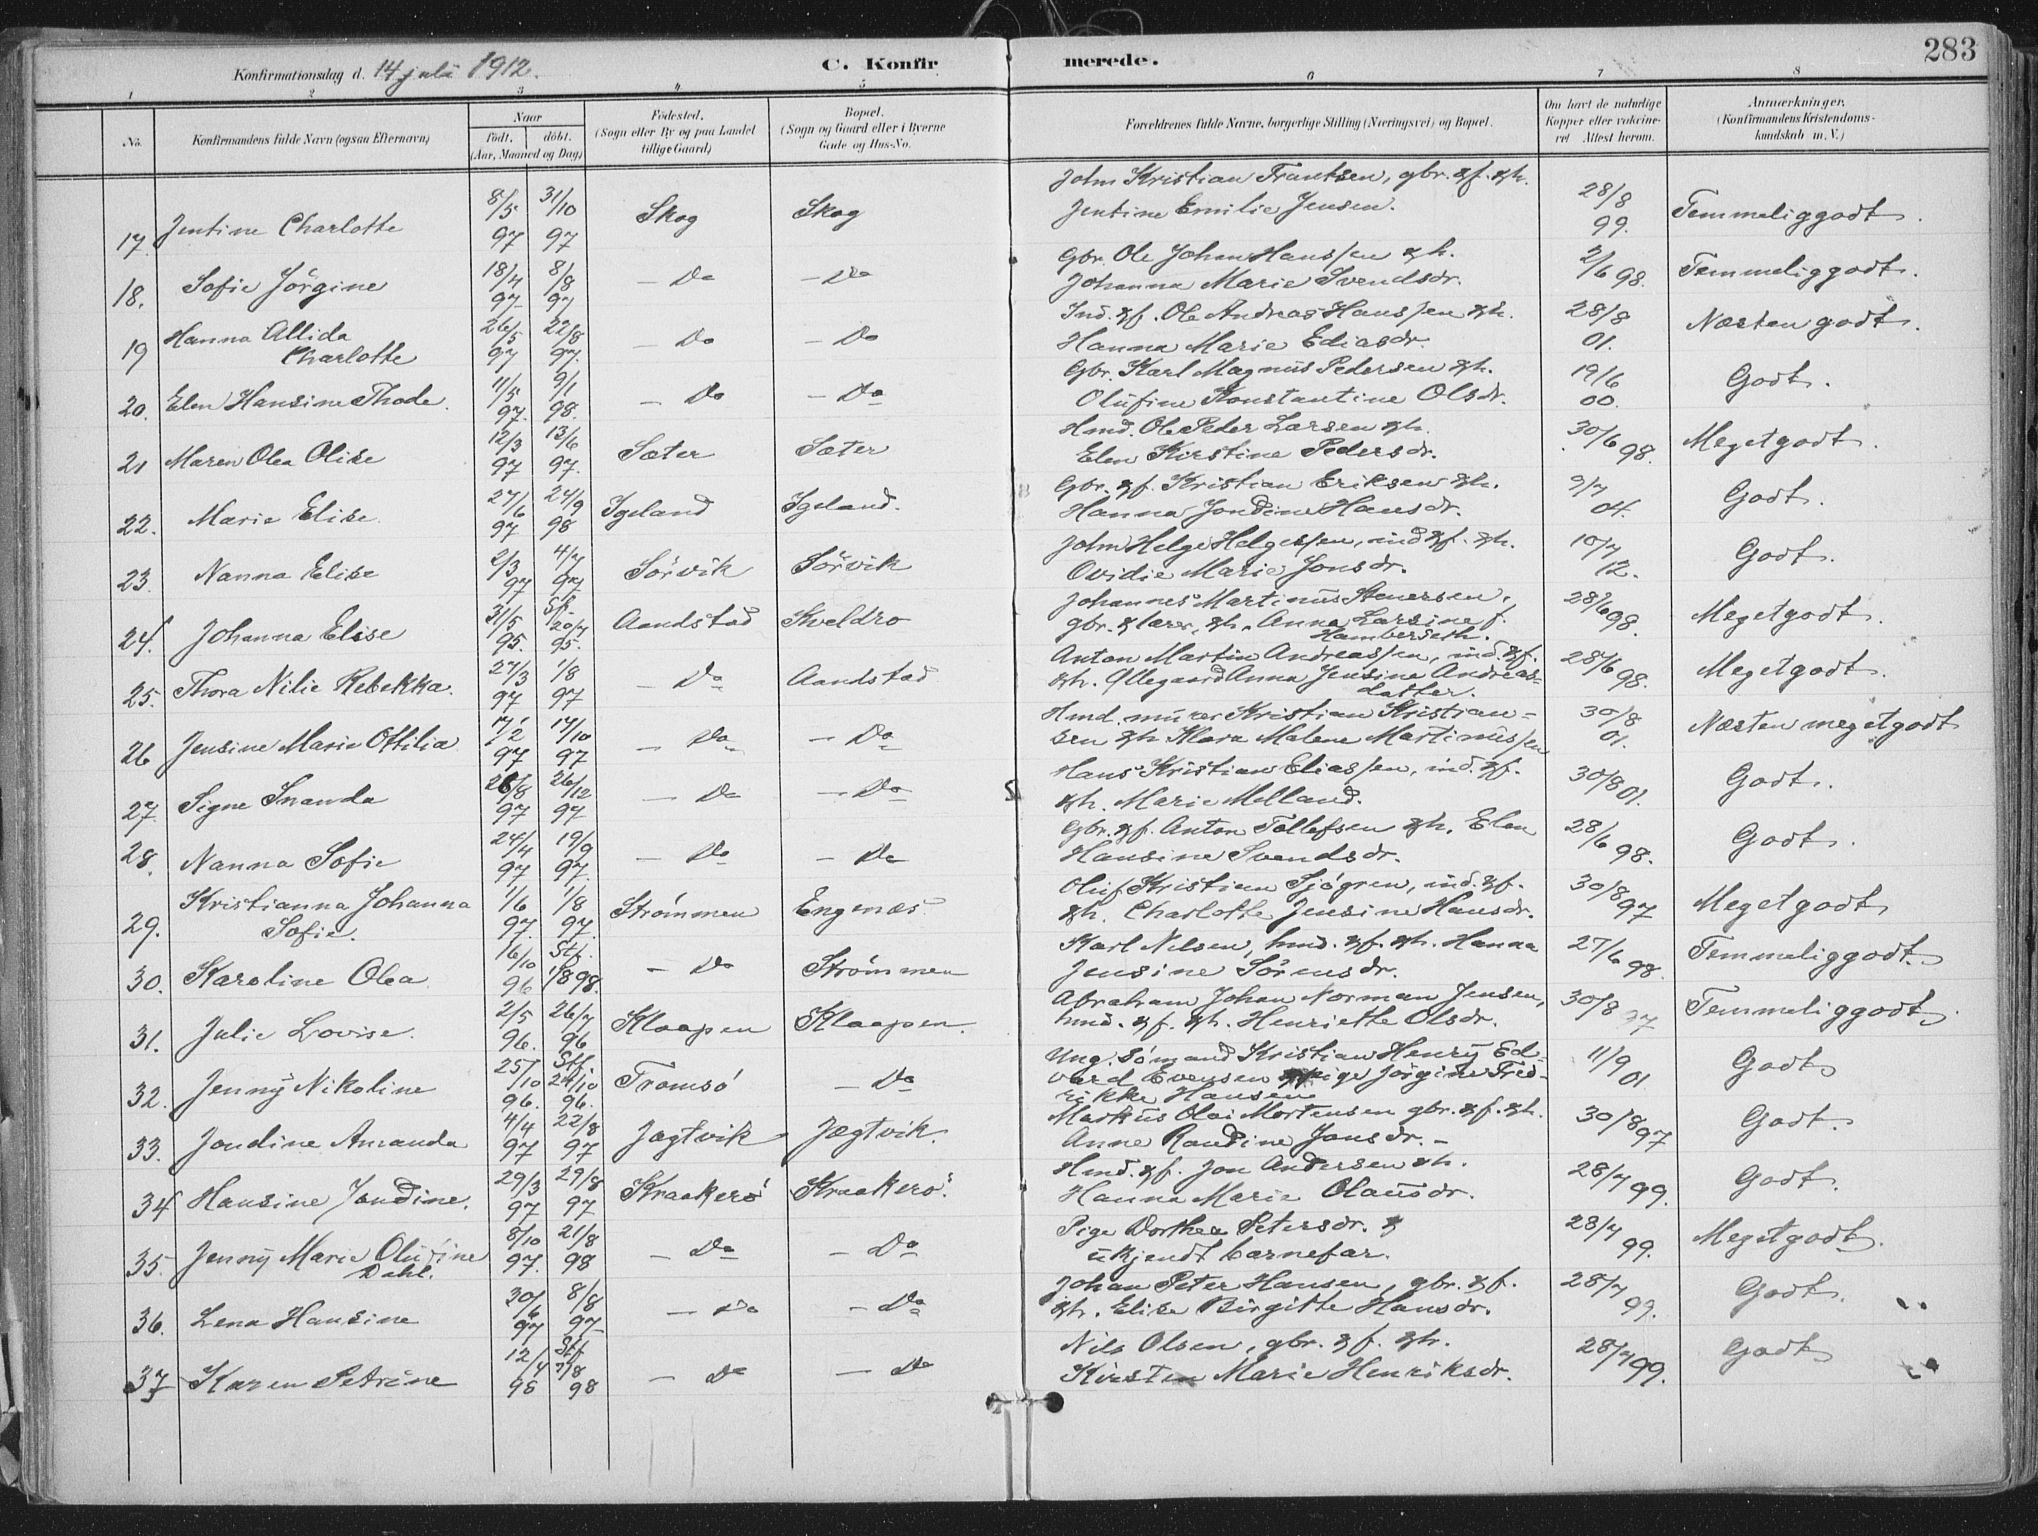 283
Konfirmationsdag d. 14 juli 1912.
C. Konfirmerede.
1 2 3 4 5 6 7 8
No.
Konfirmandens fulde Navn (ogsaa Efternavn)
Naar
født. døbt.
(Aar, Maaned og Dag)
Fødested.
(Sogn eller By og paa Landet
tillige Gaard)
Bopæl.
(Sogn og Gaard eller i Byerne
Gade og Hus-No.
Forældrenes fulde Navne, borgerlige Stilling (Næringsvei) og Bopæl.
Om havt de naturlige
Kopper eller vakcine-
ret Attest herom.
Anmærkninger.
(Konfirmandens Kristendoms-
kundskab m. V.)
17. Jentine Charlotte 8/5 97 31/10 97 Skog Skog John Kristian Frantsen, gbr. & f. & h. 28/8 99. Temmelig godt.
Jentine Emilie Jensen.
18. Sofie Jörgine 18/4 97 8/8 97 — Do — Do Gbr. Ole Johan Hanssen & h. 2/6 98. Temmelig godt.
Johanna Marie Svendsdr.
19 Hanna Allida 26/5 97 22/8 97. — Do — Do Ind. & f. Ole Andreas Hanssen & h. 28/8 01. Næsten godt.
Charlotte Hanna Marie Ediasdr.
20. Elen Hansine Thode. 11/5 97. 9/1 98. — Do — Do Gbr. Karl Magnus Pedersen & h. 19/6 00. Godt.
Olufine Konstantine Olsdr.
21 Maren Olea Olise 12/3 97 13/6 97. Sæter Sæter Hmd. Ole Peder Larsen & h. 30/6 98. Meget godt.
Elen Kirstine Pedersdr.
22. Marie Elise 27/6 97 24/9 98 Igeland Igeland. Gbr. & f. Kristian Eriksen & h. 9/7 04. Godt.
Hanna Jondine Hansdr.
23. Nanna Elise 2/3 97 4/7 97 Sörvik Sörvik John Helge Helgessen, ind & f. & h. 10/7 12. Godt.
Ovidie Marie Jonsdr.
24. Johanna Elise 31/5 95. Stf. 20/7 95. Aandstad Kveldro Johannes Martinus Stenersen, 28/6 98. Meget godt.
gbr. & lærer, & h. Anna Larsine f.
Hamberseth.
25. Thora Nilie Rebekka. 27/3 97 1/8 97 — Do Aandstad Anton Martin Andreassen, ind. & f. 28/6 98. Meget godt.
& h. Ollegaard Anna Jensine Andreas-
datter.
26 Jensine Marie Ottilia 17/2 97 17/10 97 — Do — Do Hmd. murer Kristian Kristian- 30/8 01. Næsten meget godt
sen & h Klara Malene Martinussen
27. Signe Snanda 28/8 97 26/12 97 — Do — Do Hans Kristian Eliassen, ind. & f. 30/8 01. Godt.
& h. Marie Melland.
28. Nanna Sofie 24/4 97 19/9 97. — Do — Do Gbr. & f. Anton Tollefsen & h. Elen 28/6 98. Godt.
Hansine Svendsdr.
29. Kristianna Johanna 1/6 97. 1/8 97. Strømmen Engenæs Oluf Kristian Sjögren, ind. & f. 30/8 97 Meget godt
Sofie. & h. Charlotte Jensine Hansdr.
30. Karoline Olea 16/10 96 Stf. 1/8 98. — Do Strømmen Karl Nilsen, hmd. & f. & h. Hanna 27/6 98. Temmelig godt.
Jensine Sörensdr.
31. Julie Lovise. 2/5 96. 26/7 96 Klaapen Klaapen. Abraham Johan Norman Jensen, 30/8 97 Temmelig godt
hmd. & f. & h. Henriette Olsdr.
32. Jenny Nikoline 25/10 96. Stf. 24/10 96. Tromsö — Do Ung. sömand Kristian Henry Ed- 11/9 01. Godt
vard Evensen & pige Jörgine Fred-
rikke Hansen
33. Jondine Amanda 4/4 97 22/8 97 Jægtvik Jægtvik. Markus Olai Mortensen gbr. & f. & h. 30/8 97 Godt.
Anne Randine Jonsdr. –
34 Hansine Jondine. 29/3 97 29/8 97 Kraakerö Kraakerö. Hmd. & f. Jon Andersen & h. 28/7 99. Godt.
Hanna Marie Olausdr.
35. Jenny Marie Olufine 8/10 97. 21/8 98 — Do — Do Pige Dorthea Petersdr. & 28/7 99. Meget godt.
Dahl. ukjendt barnefar.
36. Lena Hansine 30/6 97 8/8 97 — Do — Do Johan Peter Hansen, gbr. & f. 28/7 99. Godt.
& h. Elise Birgitte Hansdr.
37 Karen Petrine 12/4 98 Stf 7/8 98 — Do — Do Nils Olsen, gbr. & f. & h. 28/7 99. Godt
Kirsten Marie Henriksdr.